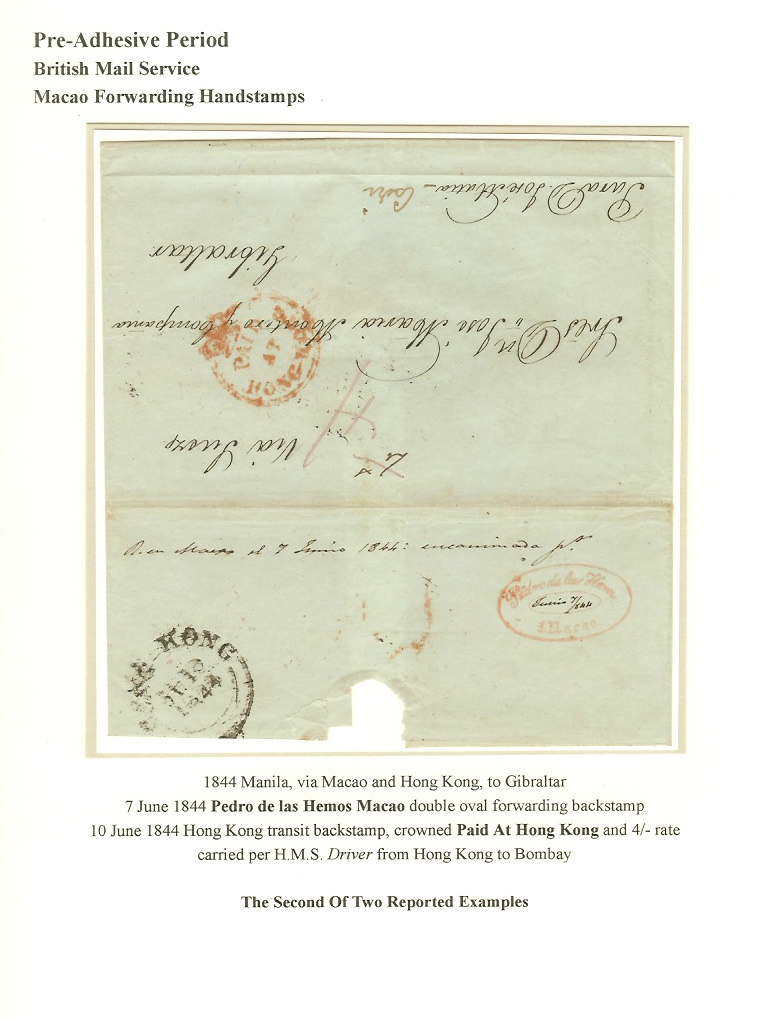 Pre-Adhesive Period
British Mail Service
Macao Forwarding Handstamps
Para D. José Maria
Gibraltar
Sres Dn José Maria Montero y Compania
PAID AT
HONG KONG
4
Via Suez
R. en Macao el 7 Junio 1844: encaminada pr.
Pedro de las Hemos
Junio 7/844
Macao
HONG KONG
1844
1844 Manila, via Macao and Hong Kong, to Gibraltar
7 June 1844 Pedro de las Hemos Macao double oval forwarding backstamp
10 June 1844 Hong Kong transit backstamp, crowned Paid At Hong Kong and 4/- rate
carried per H.M.S. Driver from Hong Kong to Bombay
The Second Of Two Reported Examples